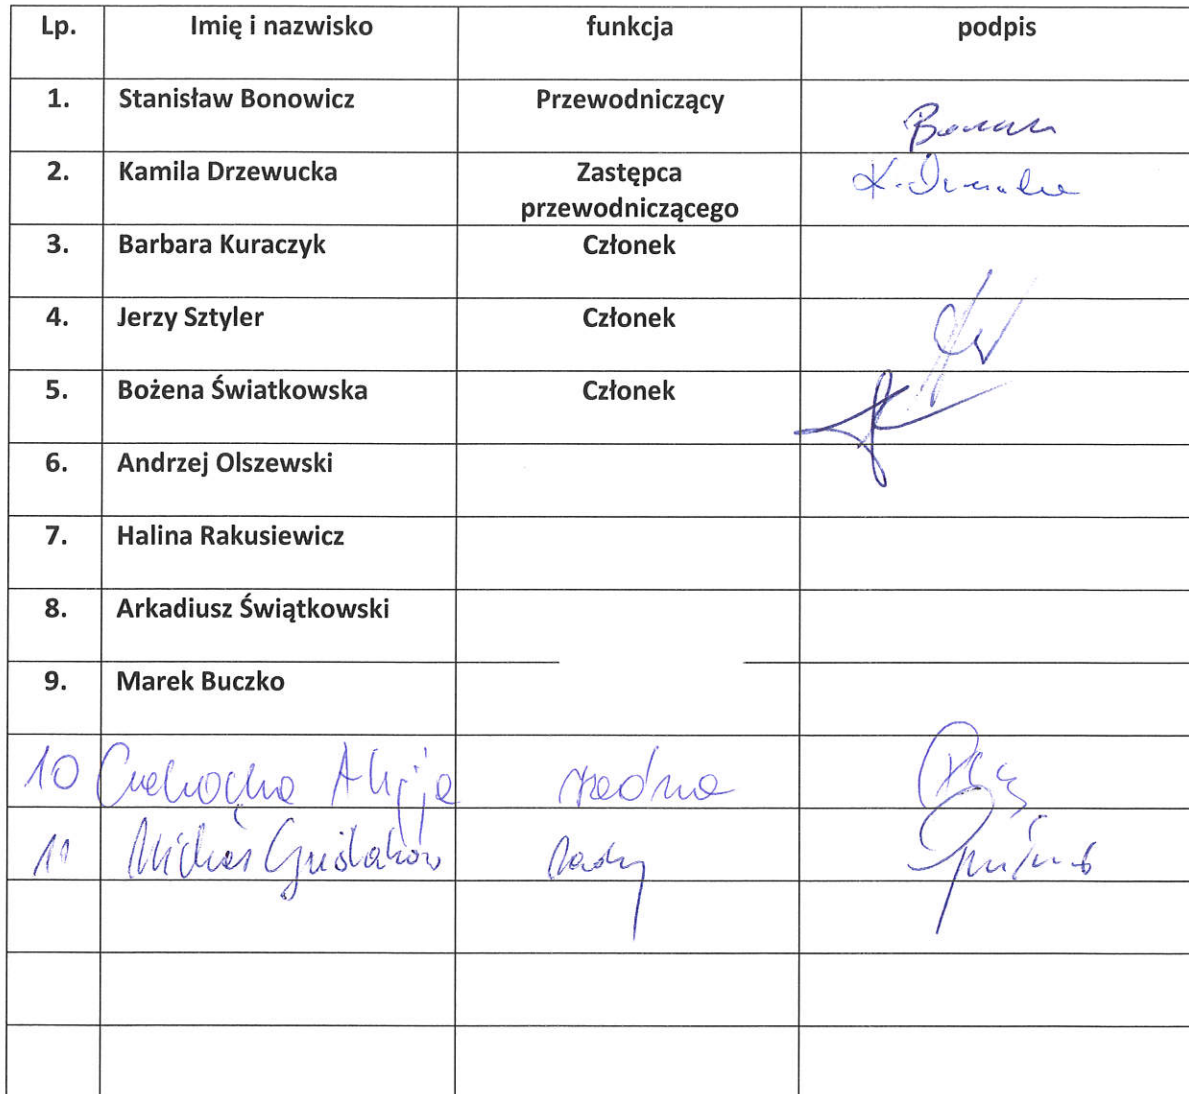 Lp. Imię i nazwisko funkcja podpis
1. Stanisław Bonowicz Przewodniczący
2. Kamila Drzewucka Zastępca
przewodniczącego
3. Barbara Kuraczyk Członek
4. Jerzy Sztyler Członek
5. Bożena Światkowska Członek
6. Andrzej Olszewski
7. Halina Rakusiewicz
8. Arkadiusz Świątkowski
9. Marek Buczko
10 Alicja radna
11 Michał radny